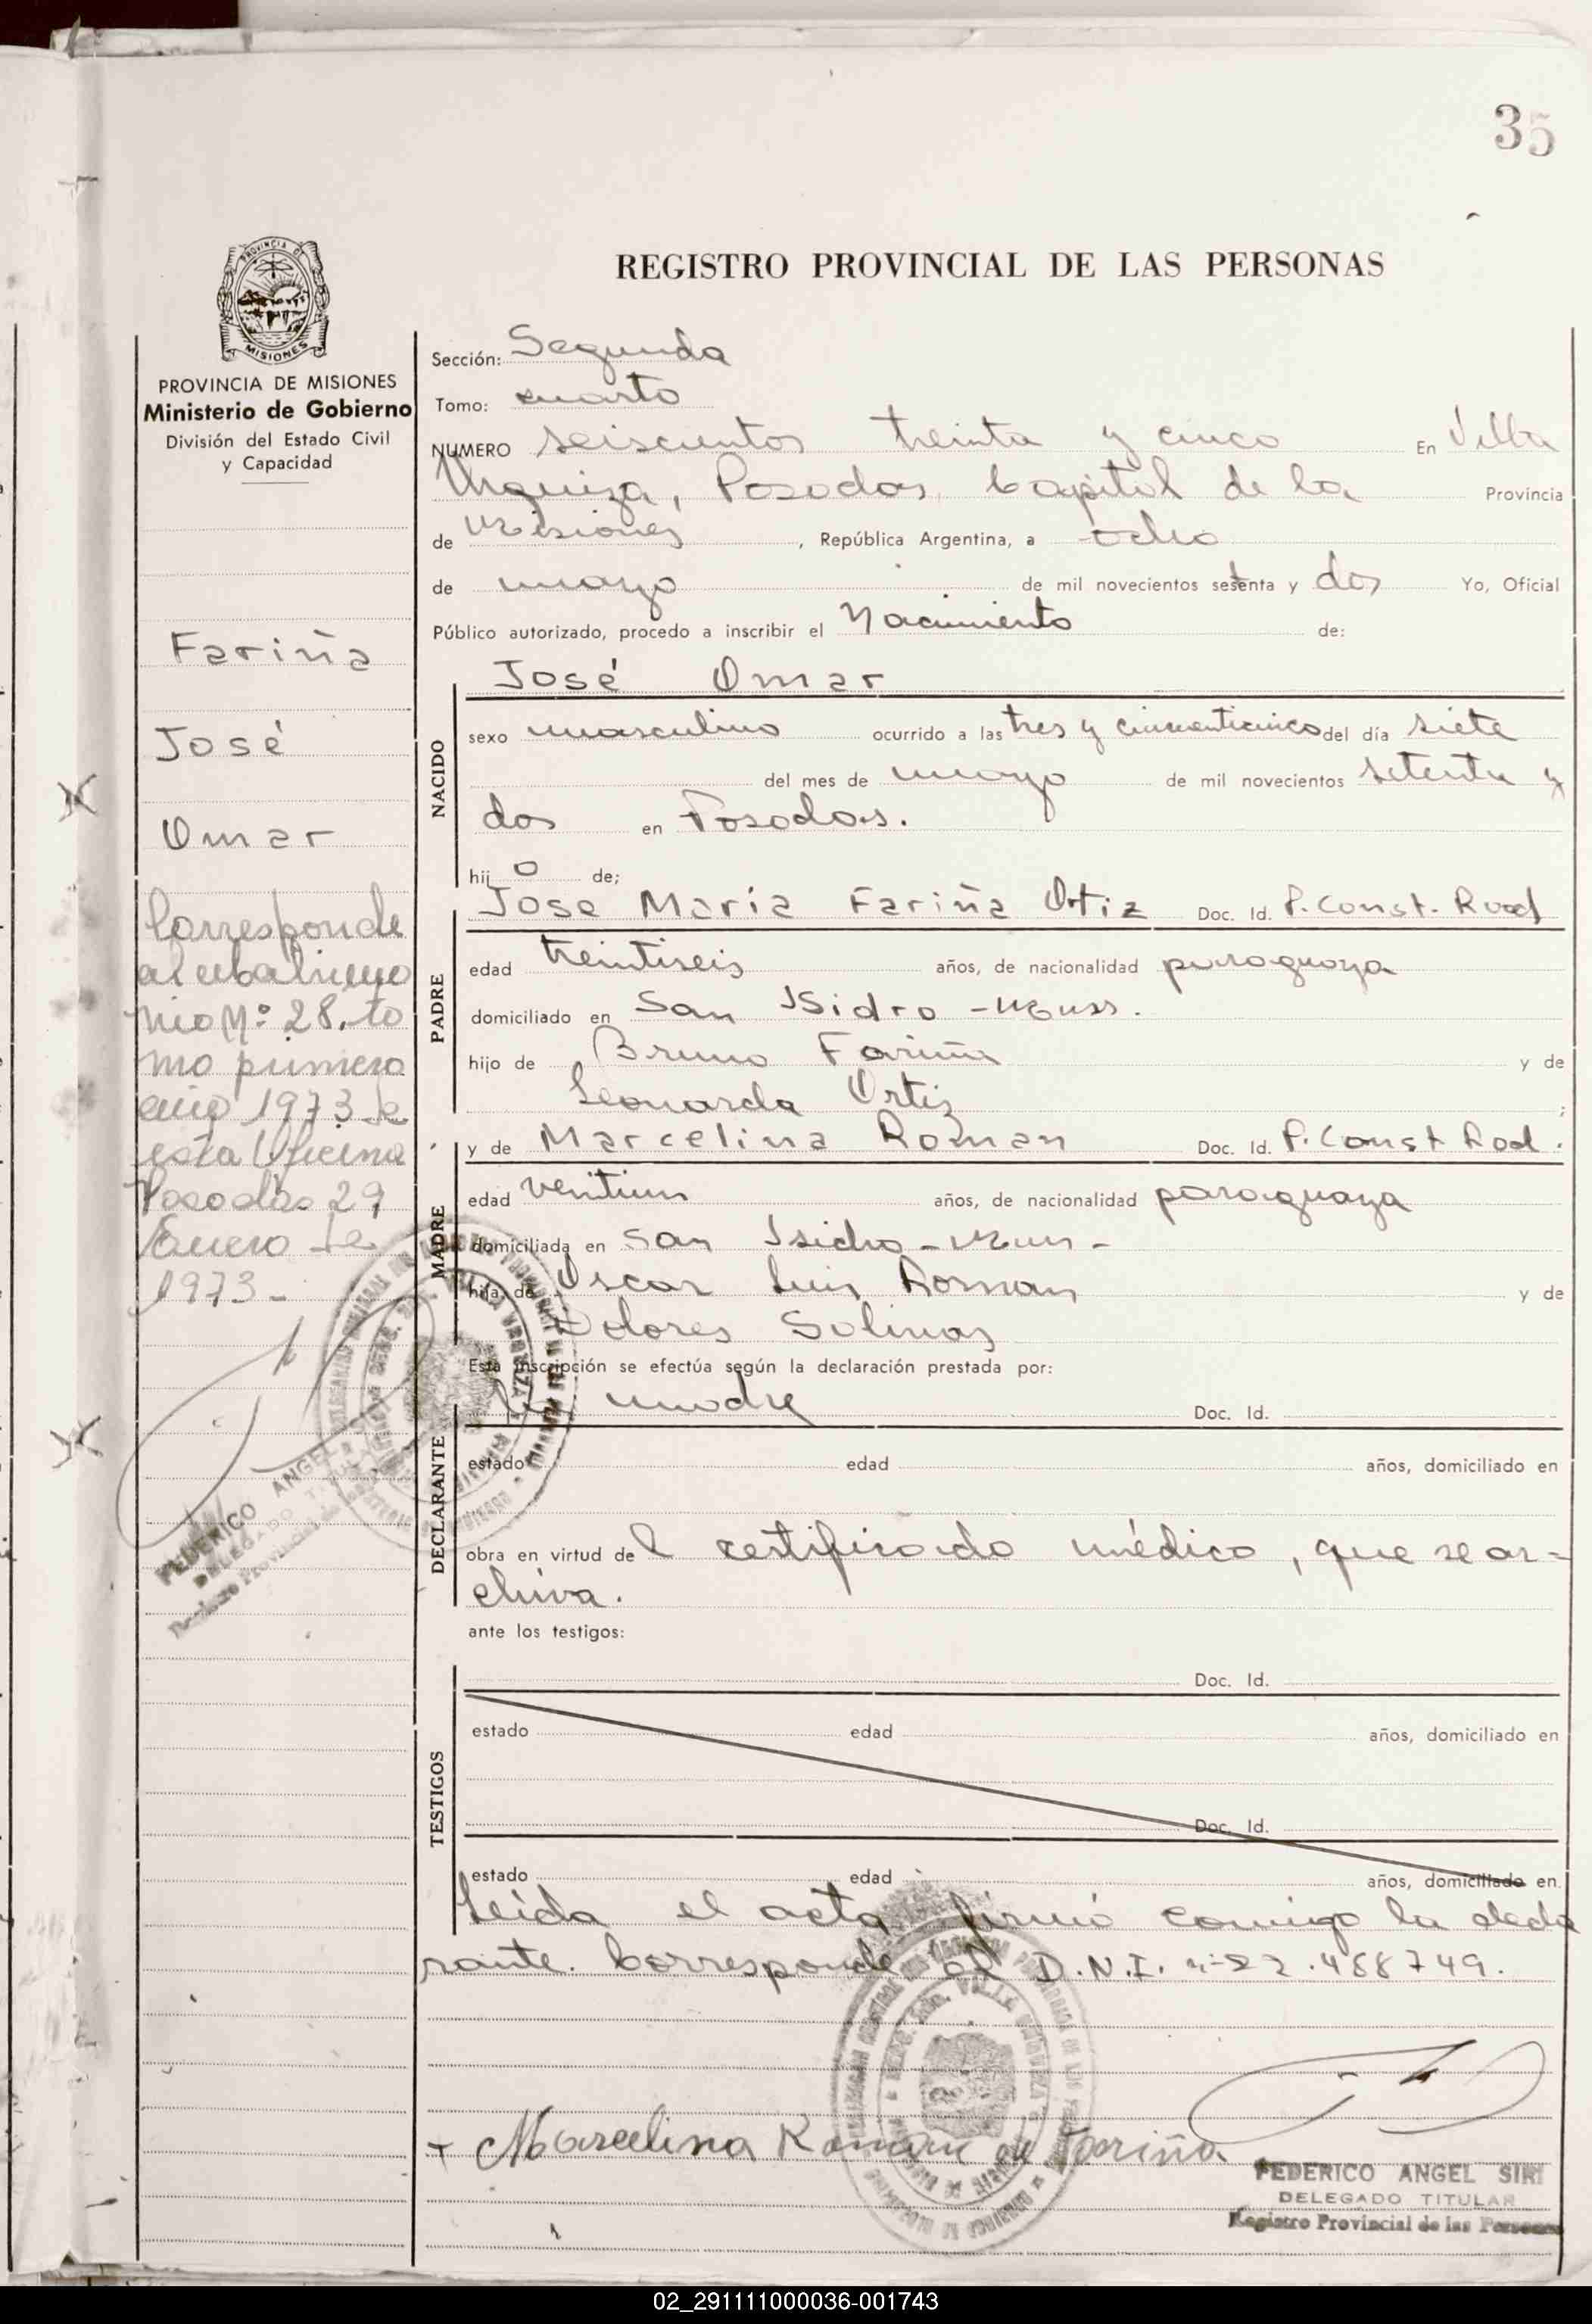 35
REGISTRO PROVINCIAL DE LAS PERSONAS
PROVINCIA DE MISIONES
Ministerio de Gobierno
División del Estado Civil
y Capacidad
Fariña
José
Omar
Corresponde
al
Nº 28. to
mo primero
año 1973 de
esta Oficina
Posadas 29
Enero de
1973.-
FEDERICO ANGEL
DELEGADO TITULAR
Sección: Segunda
Tomo: cuarto
NUMERO seiscientos treinta y cinco En Villa
Urquiza, Posadas, Capital de la Provincia
de Misiones, República Argentina, a ocho
de mayo de mil novecientos setenta y dos Yo, Oficial
Público autorizado, procedo a inscribir el Nacimiento de:
José Omar
NACIDO
sexo masculino ocurrido a las tres y cincuenticinco del día siete
del mes de mayo de mil novecientos setenta y
dos en Posadas.
hijo de;
PADRE
Jose María Fariña Ortiz Doc. Id. P. Const. Rvad
edad treintiseis años, de nacionalidad paraguaya
domiciliado en San Isidro -
hijo de Bruno Fariña y de
Leonarda Ortiz ;
MADRE
y de Marcelina Roman Doc. Id. P. Const Rod.
edad ventiun años, de nacionalidad paraguaya
domiciliada en San Isidro -
hija de Oscar Luis Roman y de
Dolores Solinas
Esta inscripción se efectúa según la declaración prestada por:
DECLARANTE
La madre Doc. Id.
estado edad años, domiciliado en
obra en virtud del certificado médico, que se ar-
chiva.
ante los testigos:
TESTIGOS
Doc. Id.
estado edad años, domiciliado en
Doc. Id.
estado edad años, domiciliado en
Leída el acta firmó conmigo la decla
rante. Corresponde al D.N.I. nº 22.488749.
+ Marcelina Roman de Fariña
FEDERICO ANGEL SIRI
DELEGADO TITULAR
Registro Provincial de las Personas
02_291111000036-001743